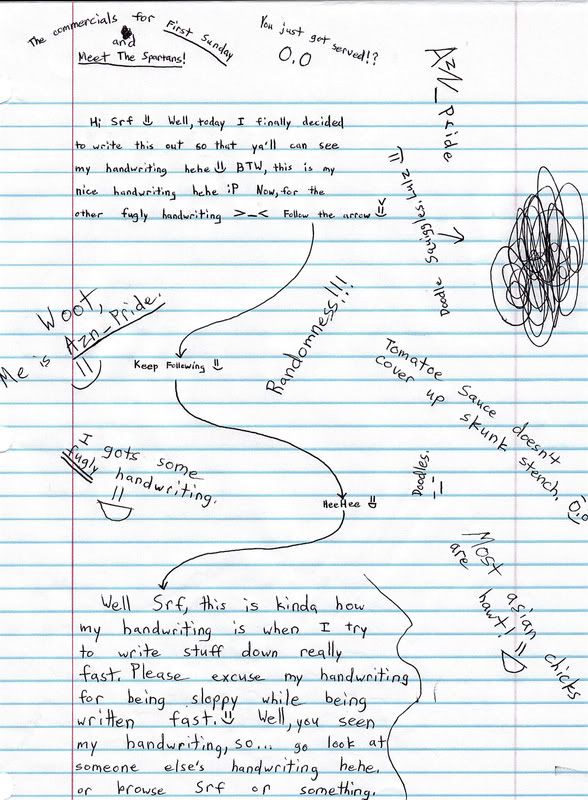 The commercials for First Sunday
and
Meet The Spartans!
You just got served!?
O.O
Azn_Pride
Hi Srf =) Well, today I finally decided
to write this out so that ya'll can see
my handwriting hehe =) BTW, this is my
nice handwriting hehe :P Now, for the
other fugly handwriting >_< Follow the arrow =)
Doodle Squiggles. Lulz =)
Woot,
Me is Azn_Pride.
=)
Keep Following =)
Randomness!!!
Tomatoe Sauce doesn't
cover up skunk stench. O.o
I gots some
fugly handwriting.
=D
Doodles.
HeeHee =D
Most asian chicks
are hawt! =D
Well Srf, this is kinda how
my handwriting is when I try
to write stuff down really
fast. Please excuse my handwriting
for being sloppy while being
written fast. =) Well, you seen
my handwriting, so... go look at
someone else's handwriting hehe.
or browse Srf or something.